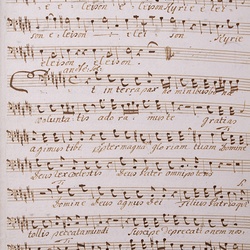 e eleison eleison Kyrie e lei
son eleison e lei son Kyrie
eleison eleison.
et in terra pax hominibus
voluntatis adora mus te gratias
agimus tibi propter magnam gloriam tuam Domine
Deus coelestis Deus Pater omnipotens
Domine Deus agnus dei Filius Patris qui
tollis peccata mundi Suscipe deprecationem nos